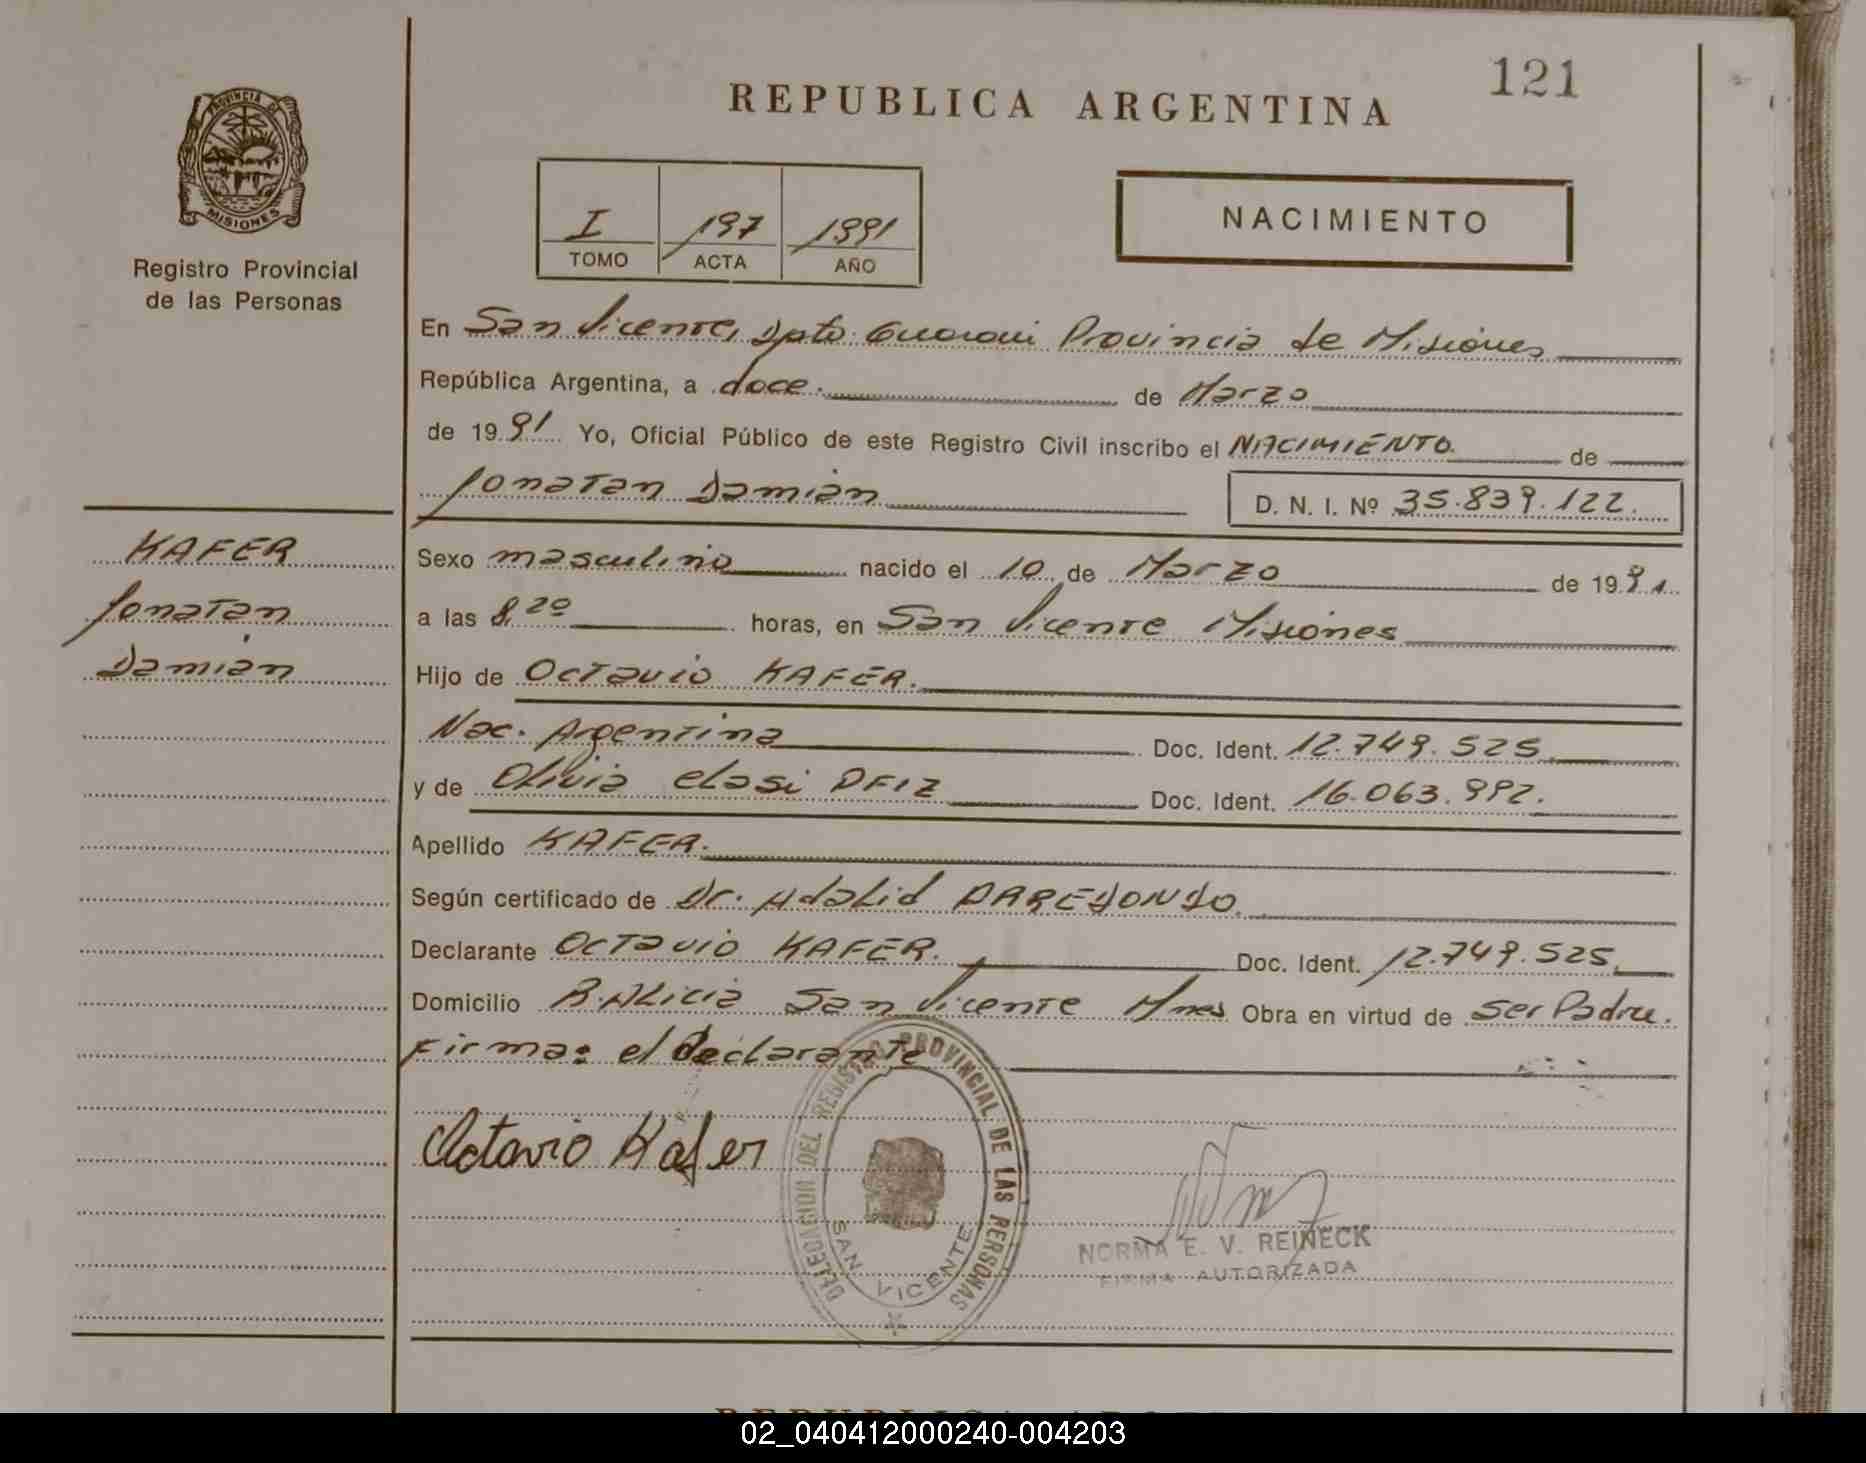 121
REPUBLICA ARGENTINA
PROVINCIA DE
MISIONES
Registro Provincial
de las Personas
I 197 1991
TOMO ACTA AÑO
NACIMIENTO
En San Vicente, Dpto. Guarani Provincia de Misiones
República Argentina, a doce. de Marzo
de 1991 Yo, Oficial Público de este Registro Civil inscribo el NACIMIENTO. de
Jonatan Damián D. N. I. Nº 35.839.122.
KAFER
Jonatan
Damián
Sexo masculino nacido el 10 de Marzo de 1991.
a las 8,20 horas, en San Vicente Misiones
Hijo de Octavio KAFER.
Nac. Argentina Doc. Ident. 12.749.525.
y de Olivia Elasi Doc. Ident. 16.063.992.
Apellido KAFER.
Según certificado de Dr. Adalid
Declarante Octavio KAFER. Doc. Ident. 12.749.525.
Domicilio B. Alicia San Vicente Mnes Obra en virtud de ser Padre.
Firma: el declarante
Octavio Kafer
DELEGACION DEL REGISTRO PROVINCIAL DE LAS PERSONAS
SAN VICENTE
NORMA E. V. REINECK
FIRMA AUTORIZADA
02_040412000240-004203